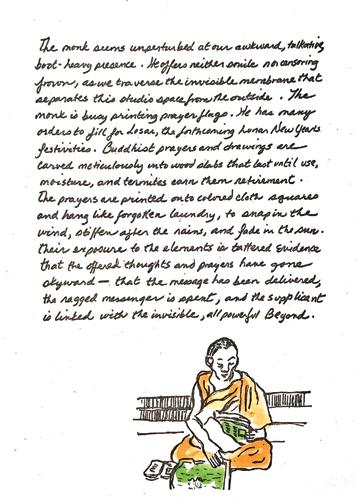 The monk seems unperturbed at our awkward, talkative,
boot-heavy presence. He offers neither smile nor censoring
frown, as we traverse the invisible membrane that
separates this studio space from the outside. The
monk is busy printing prayer flags. He has many
orders to fill for Losar, the forthcoming Lunar New Years
festivities. Buddhist prayers and drawings are
carved meticulously into wood slabs that last until use,
moisture, and termites earn them retirement.
The prayers are printed onto colored cloth squares
and hang like forgotten laundry, to snap in the
wind, stiffen after the rains, and fade in the sun.
Their exposure to the elements is tattered evidence
that the offered thoughts and prayers have gone
skyward — that the message has been delivered,
the ragged messenger is spent, and the supplicant
is linked with the invisible, all powerful Beyond.